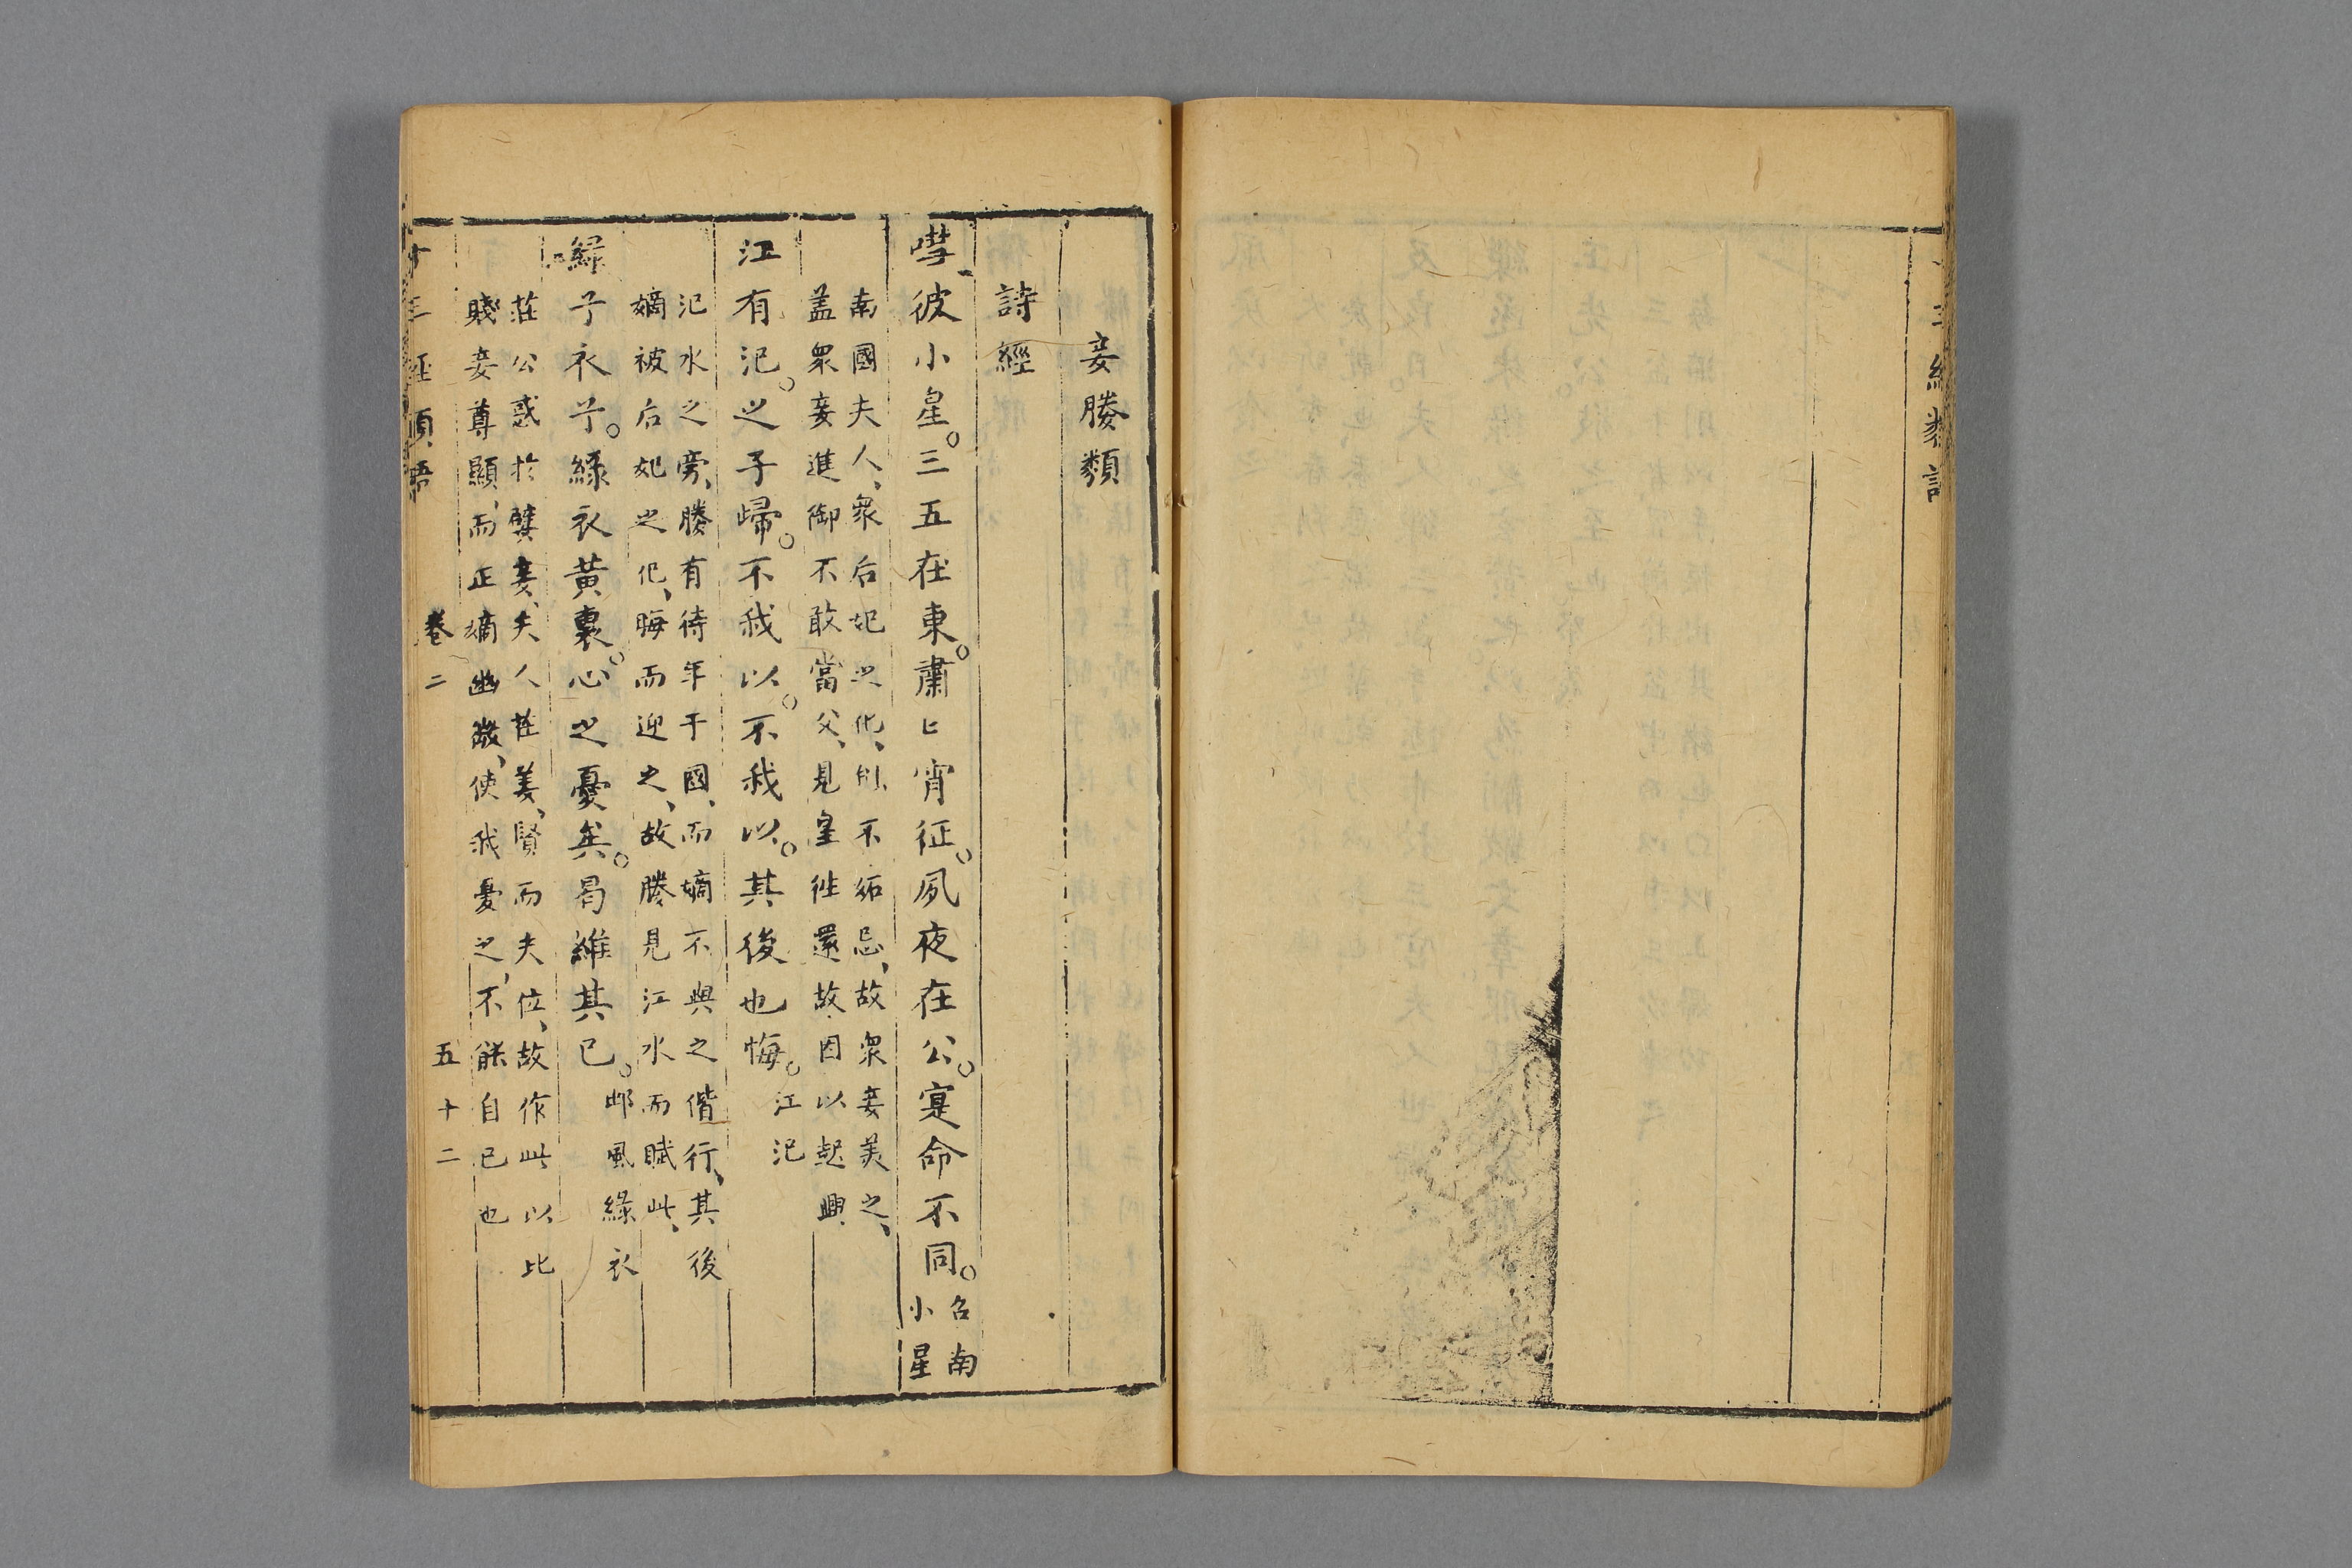 妾媵類
詩經
嘒彼小星。三五在東。肅〻宵征。夙夜在公。寔命不同。召南
小星
南國夫人、衆后妃之化、能不妬忌、故衆妾美之、
盖衆妾進御不敢當夕、見星徃還故因以起興
江有汜。之子歸。不我以。不我以。其後也悔。江汜
汜水之旁、媵有待年于國、而嫡不與之偕行、其後
嫡被后妃之化、晦而迎之、故媵見江水而賦此、
緑兮衣兮。緑衣黃裏。心之憂矣。曷維其已。邶風綠衣
莊公惑於嬖妾、夫人莊姜、賢而失位、故作此以比
賤妾尊顯、而正嫡幽微、使我憂之、不能自已也
卷二
五十二